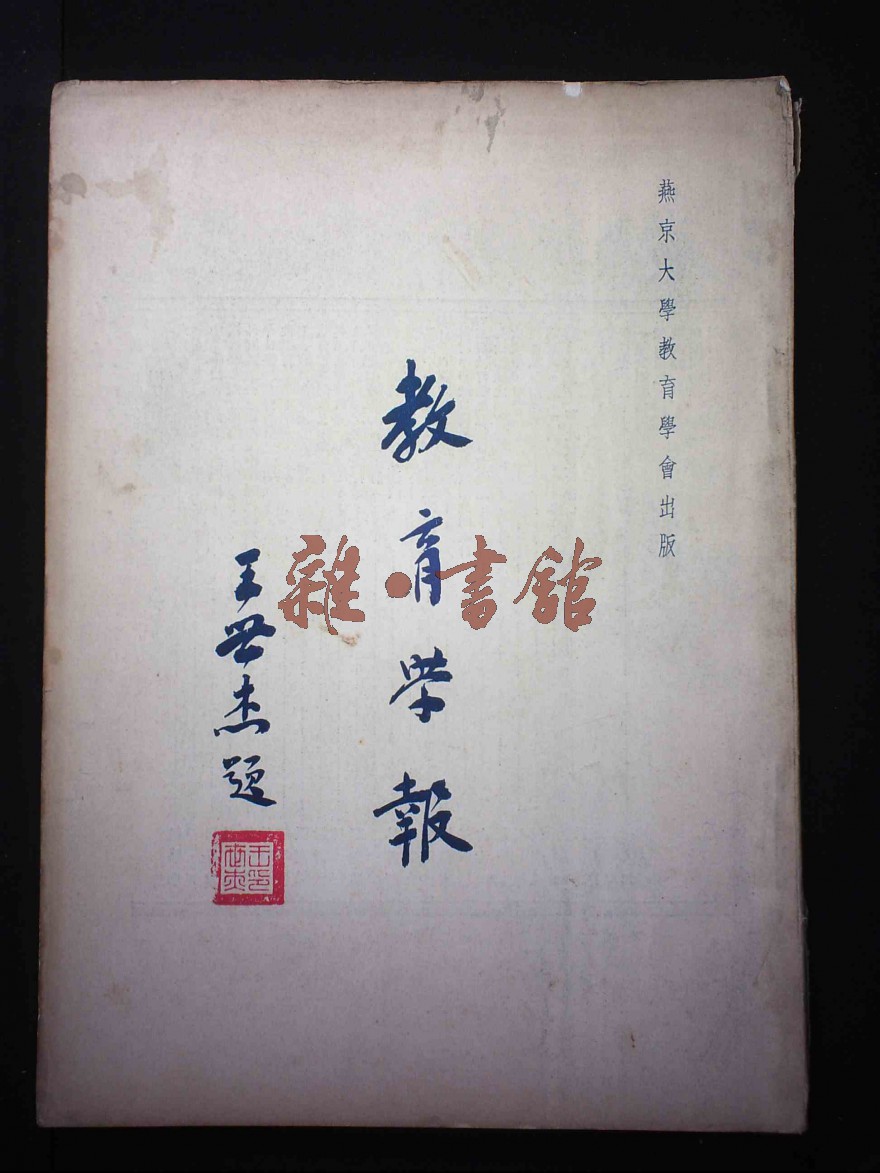 燕京大學教育學會出版
教育学報
王世杰題
雜·書舘
王世杰印